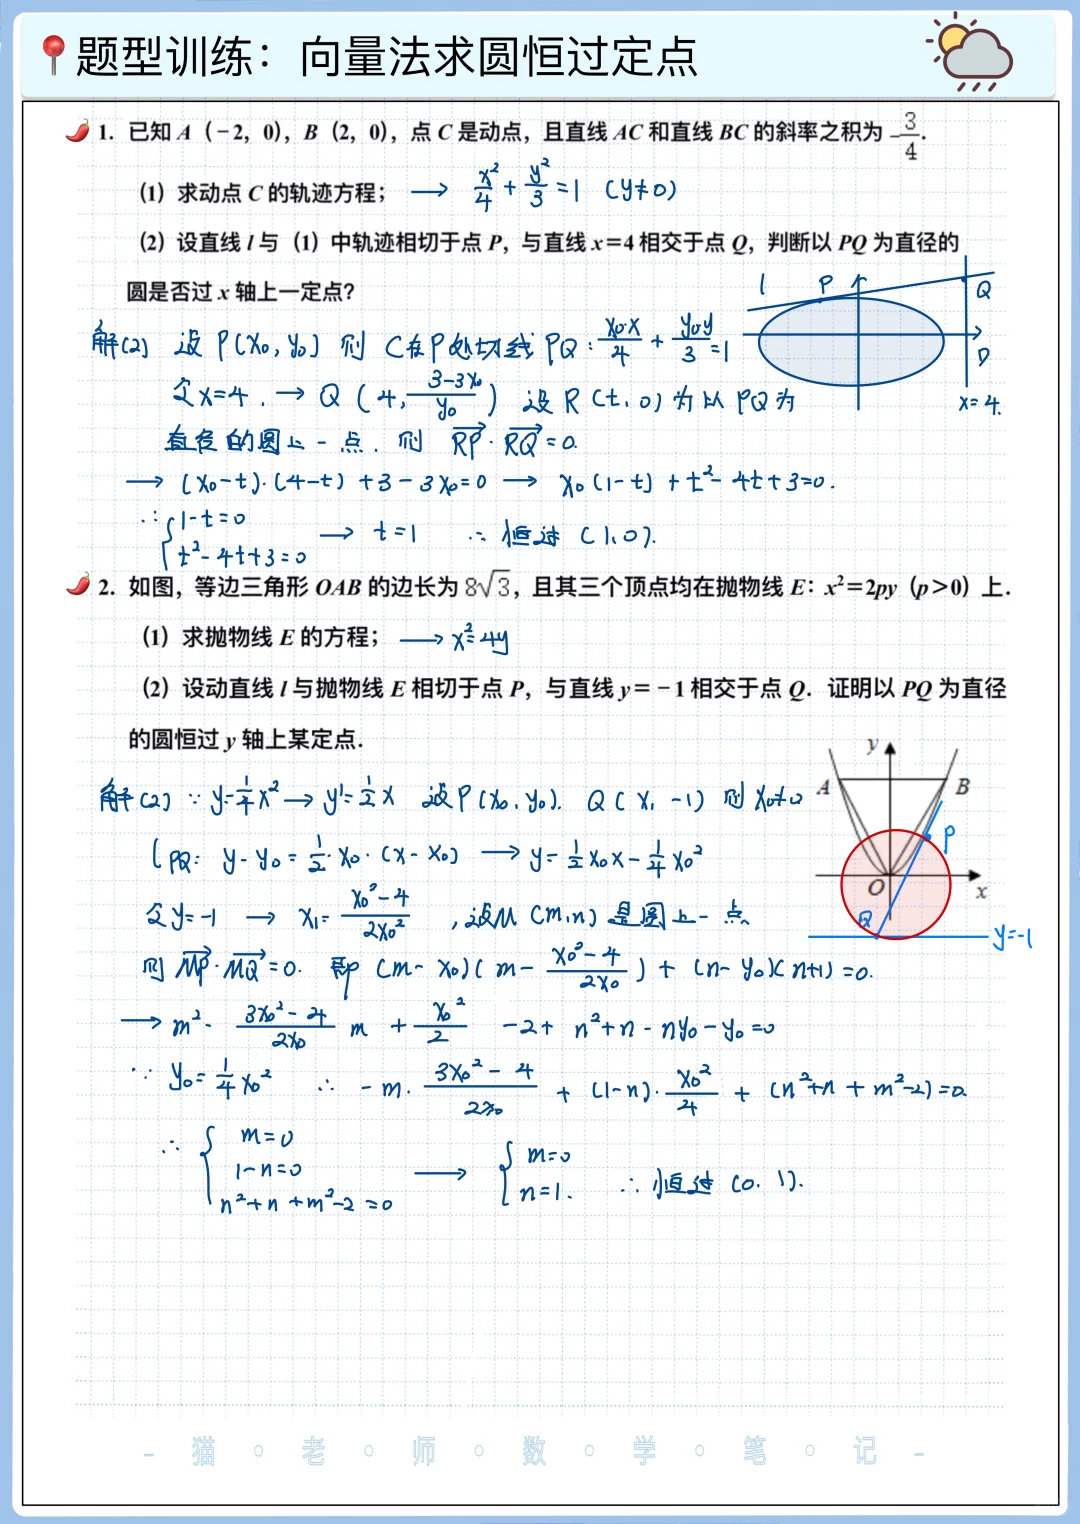 题型训练：向量法求圆恒过定点
1. 已知 A（－2，0），B（2，0），点 C 是动点，且直线 AC 和直线 BC 的斜率之积为 －3/4．
（1）求动点 C 的轨迹方程； → x²/4 + y²/3 = 1 （y≠0）
（2）设直线 l 与（1）中轨迹相切于点 P，与直线 x＝4 相交于点 Q，判断以 PQ 为直径的
圆是否过 x 轴上一定点？
l P Q
D
x=4.
解(2) 设 P(x₀,y₀) 则 C在P处切线 PQ: x₀x/4 + y₀y/3 =1
令x=4. → Q (4, (3-3x₀)/y₀) 设 R (t,0) 为以 PQ为
直径的圆上一点. 则 RP·RQ=0.
→ (x₀-t)·(4-t) +3-3x₀=0 → x₀(1-t)+t²-4t+3=0.
∴ { 1-t=0
t²-4t+3=0 → t=1 ∴ 恒过 (1,0).
2. 如图，等边三角形 OAB 的边长为 8√3，且其三个顶点均在抛物线 E：x²＝2py（p＞0）上．
（1）求抛物线 E 的方程； → x²=4y
（2）设动直线 l 与抛物线 E 相切于点 P，与直线 y＝－1 相交于点 Q．证明以 PQ 为直径
的圆恒过 y 轴上某定点．
y
A B
P
O x
Q
y=-1
解(2) ∵ y=1/4x² → y'=1/2x 设P(x₀,y₀). Q(x₁,-1) 则 x₀≠0
l PQ: y-y₀=1/2·x₀·(x-x₀) → y=1/2x₀x-1/4x₀²
令y=-1 → x₁=(x₀²-4)/2x₀² ,设M (m,n) 是圆上一点
则 MP·MQ=0. 即 (m-x₀)(m-(x₀²-4)/2x₀)+(n-y₀)(n+1)=0.
→ m²-(3x₀²-4)/2x₀ m + x₀²/2 -2+ n²+n-ny₀-y₀=0
∵ y₀=1/4x₀² ∴ -m·(3x₀²-4)/2x₀ + (1-n)·x₀²/4 + (n²+n+m²-2)=0.
∴ { m=0
1-n=0
n²+n+m²-2=0 → { m=0
n=1. ∴ 恒过 (0.1).
- 猫 · 老 · 师 · 数 · 学 · 笔 · 记 -